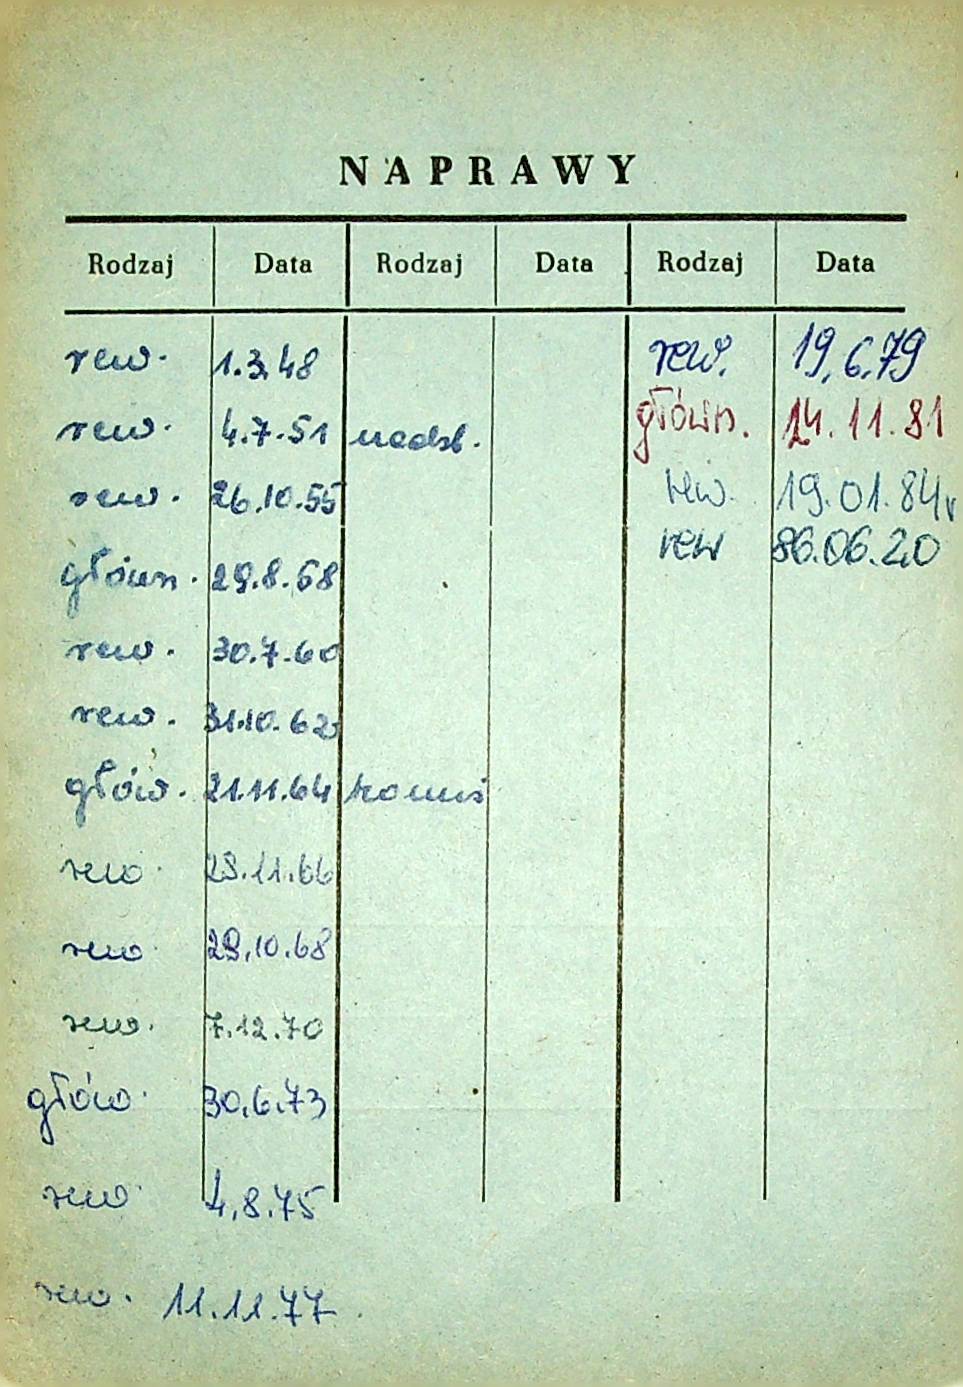 NAPRAWY
Rodzaj Data Rodzaj Data Rodzaj Data
rew. 1.3.48 rew. 19.6.79
rew. 4.7.51 nadsł. główn. 24.11.81
rew. 26.10.55 rew. 19.01.84r
rew 86.06.20
główn. 29.8.58
rew. 30.7.60
rew. 31.10.62
głów. 21.11.64
rew. 29.11.66
rew 29.10.68
rew. 7.12.70
głów. 30.6.73
rew 4.8.75
rew. 11.11.77